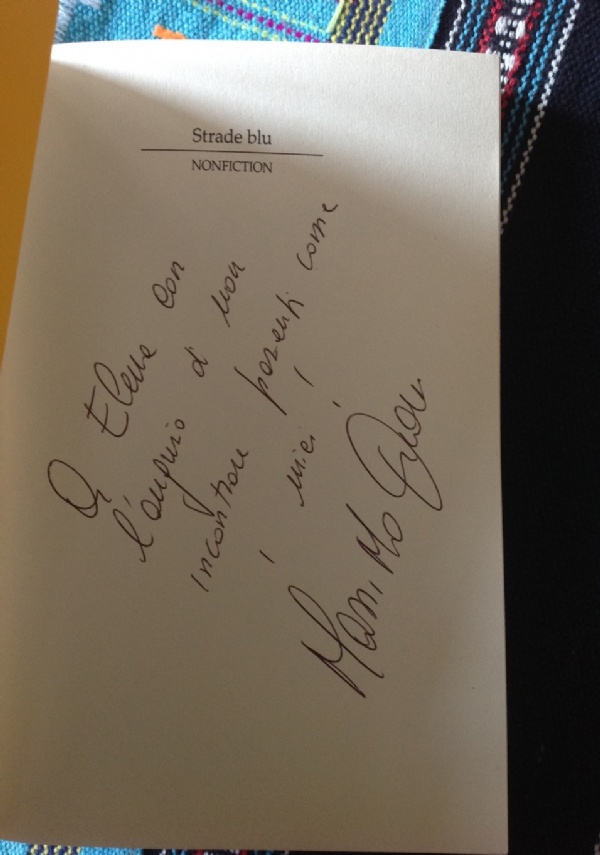 Strade blu
NONFICTION
Elena con
l'augurio di non
incontrare parenti come
i miei!